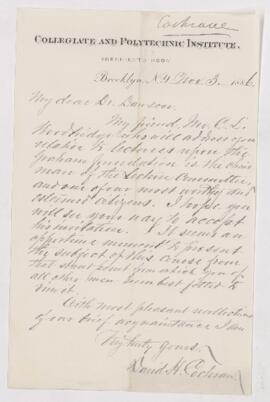 Cochrane
COLLEGIATE AND POLYTECHNIC INSTITUTE,
PRESIDENT'S ROOM
Brooklyn, N.Y. Nov 3, 1886
My dear Dr. Dawson.
My friend, Mr. C. L.
Woodbridge who will address you in
relation to lectures upon the
Graham foundation is the Chair
man of the Lecture Committee,
and one of our most worthy and
esteemed citizens. I hope you
will see your way to accept
his invitation. It seems an
opportune moment to present
the subject of this course from
that stand point from which you of
all other men are best fitted to
With most pleasant recollections
of our brief acquaintance I am
Very truly yours,
David H. Cochran